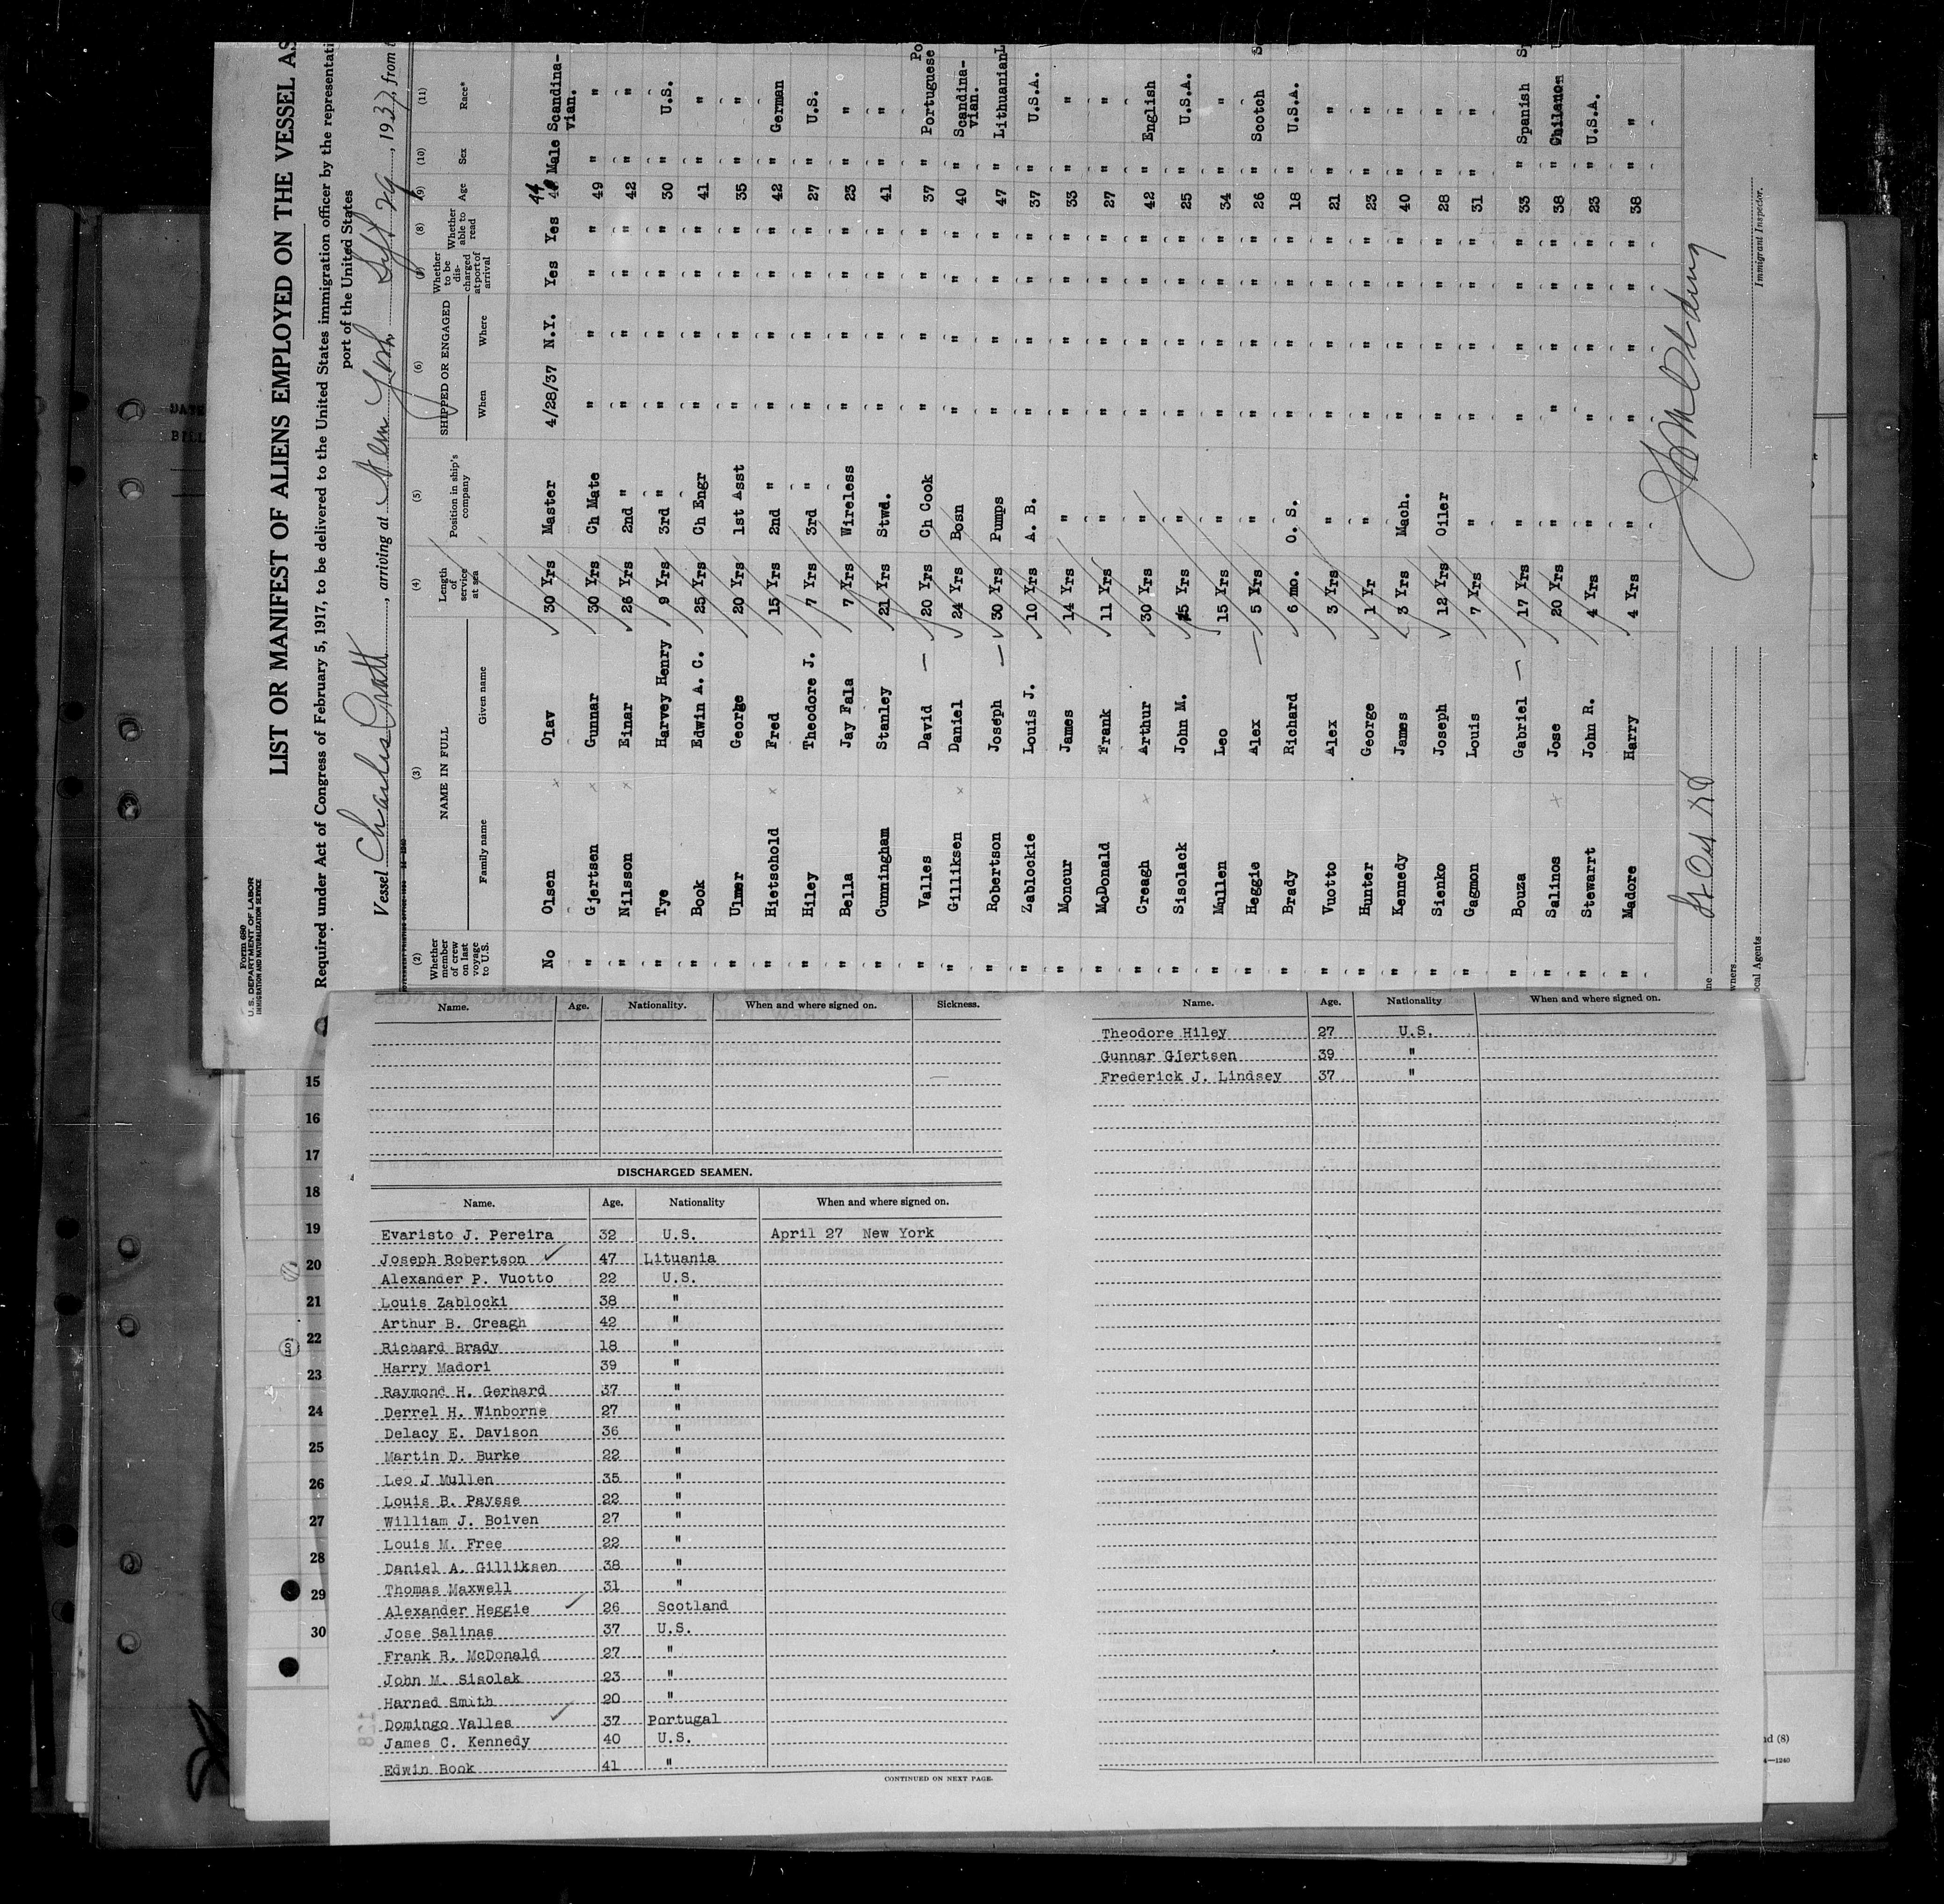 Form 680
U. S. DEPARTMENT OF LABOR
IMMIGRATION AND NATURALIZATION SERVICE
LIST OR MANIFEST OF ALIENS EMPLOYED ON THE VESSEL AS
Required under Act of Congress of February 5, 1917, to be delivered to the United States immigration officer by the representati
port of the United States
Vessel Charles Pratt, arriving at New York Sept 29, 1937, from
(2) (3) (4) (5) (6) (8) (9) (10) (11)
Whether member of crew on last voyage to U.S. NAME IN FULL Family name Given name Length of service at sea Position in ship's company SHIPPED OR ENGAGED When Where Whether to be discharged at port of arrival Whether able to read Age Sex Race*
No Olsen Olav 30 Yrs Master 4/28/37 N.Y. Yes Yes 44 Male Scandina-vian.
" Gjertsen Gunnar 30 Yrs Ch Mate " " " " 49 " "
" Nilsson Einar 26 Yrs 2nd " " " " " 42 " "
" Tye Harvey Henry 9 Yrs 3rd " " " " " 30 " U.S.
" Book Edwin A. C. 25 Yrs Ch Engr " " " " 41 " "
" Ulmer George 20 Yrs 1st Asst " " " " 35 " "
" Hietschold Fred 15 Yrs 2nd " " " " " 42 " German
" Hiley Theodore J. 7 Yrs 3rd " " " " " 27 " U.S.
" Bella Jay Fala 7 Yrs Wireless " " " " 23 " "
" Cunningham Stanley 21 Yrs Stwd. " " " " 41 " "
" Valles David 20 Yrs Ch Cook " " " " 37 " Portuguese Po
" Gilliksen Daniel 24 Yrs Bosn " " " " 40 " Scandina-vian.
" Robertson Joseph 30 Yrs Pumps " " " " 47 " Lithuanian L
" Zablockie Louis J. 10 Yrs A. B. " " " " 37 " U.S.A.
" Moncur James 14 Yrs " " " " " 33 " "
" McDonald Frank 11 Yrs " " " " " 27 " "
" Creagh Arthur 30 Yrs " " " " " 42 " English
" Sisolack John M. 5 Yrs " " " " " 25 " U.S.A.
" Mullen Leo 15 Yrs " " " " " 34 " "
" Heggie Alex 5 Yrs " " " " " 26 " Scotch
" Brady Richard 6 mo. O. S. " " " " 18 " U.S.A.
" Vuotto Alex 3 Yrs " " " " " 21 " "
" Hunter George 1 Yr " " " " " 23 " "
" Kennedy James 3 Yrs Mach. " " " " 40 " "
" Sienko Joseph 12 Yrs Oiler " " " " 28 " "
" Gagmon Louis 7 Yrs " " " " " 31 " "
" Bouza Gabriel 17 Yrs " " " " " 33 " Spanish
" Salinos Jose 20 Yrs " " " " " 38 " Chilanon
" Stewarrt John R. 4 Yrs " " " " " 23 " U.S.A.
" Madore Harry 4 Yrs " " " " " 38 " "
Immigrant Inspector.
wners
ocal Agents
DATE
BILL
15
16
17
18
19
20
21
22
23
24
25
26
27
28
29
30
Name. Age. Nationality. When and where signed on. Sickness.
DISCHARGED SEAMEN.
Name. Age. Nationality When and where signed on.
Evaristo J. Pereira 32 U.S. April 27 New York
Joseph Robertson 47 Lituania
Alexander P. Vuotto 22 U.S.
Louis Zablocki 38 "
Arthur B. Creagh 42 "
Richard Brady 18 "
Harry Madori 39 "
Raymond H. Gerhard 37 "
Derrel H. Winborne 27 "
Delacy E. Davison 36 "
Martin D. Burke 22 "
Leo J Mullen 35 "
Louis B. Paysse 22 "
William J. Boiven 27 "
Louis M. Free 22 "
Daniel A. Gilliksen 38 "
Thomas Maxwell 31 "
Alexander Heggie 26 Scotland
Jose Salinas 37 U.S.
Frank R. McDonald 27 "
John M. Sisolak 23 "
Harned Smith 20 "
Domingo Valles 37 Portugal
James C. Kennedy 40 U.S.
Edwin Book 41 "
CONTINUED ON NEXT PAGE.
Name. Age. Nationality When and where signed on.
Theodore Hiley 27 U.S.
Gunnar Gjertsen 39 "
Frederick J. Lindsey 37 "
nd (8)
4—1240